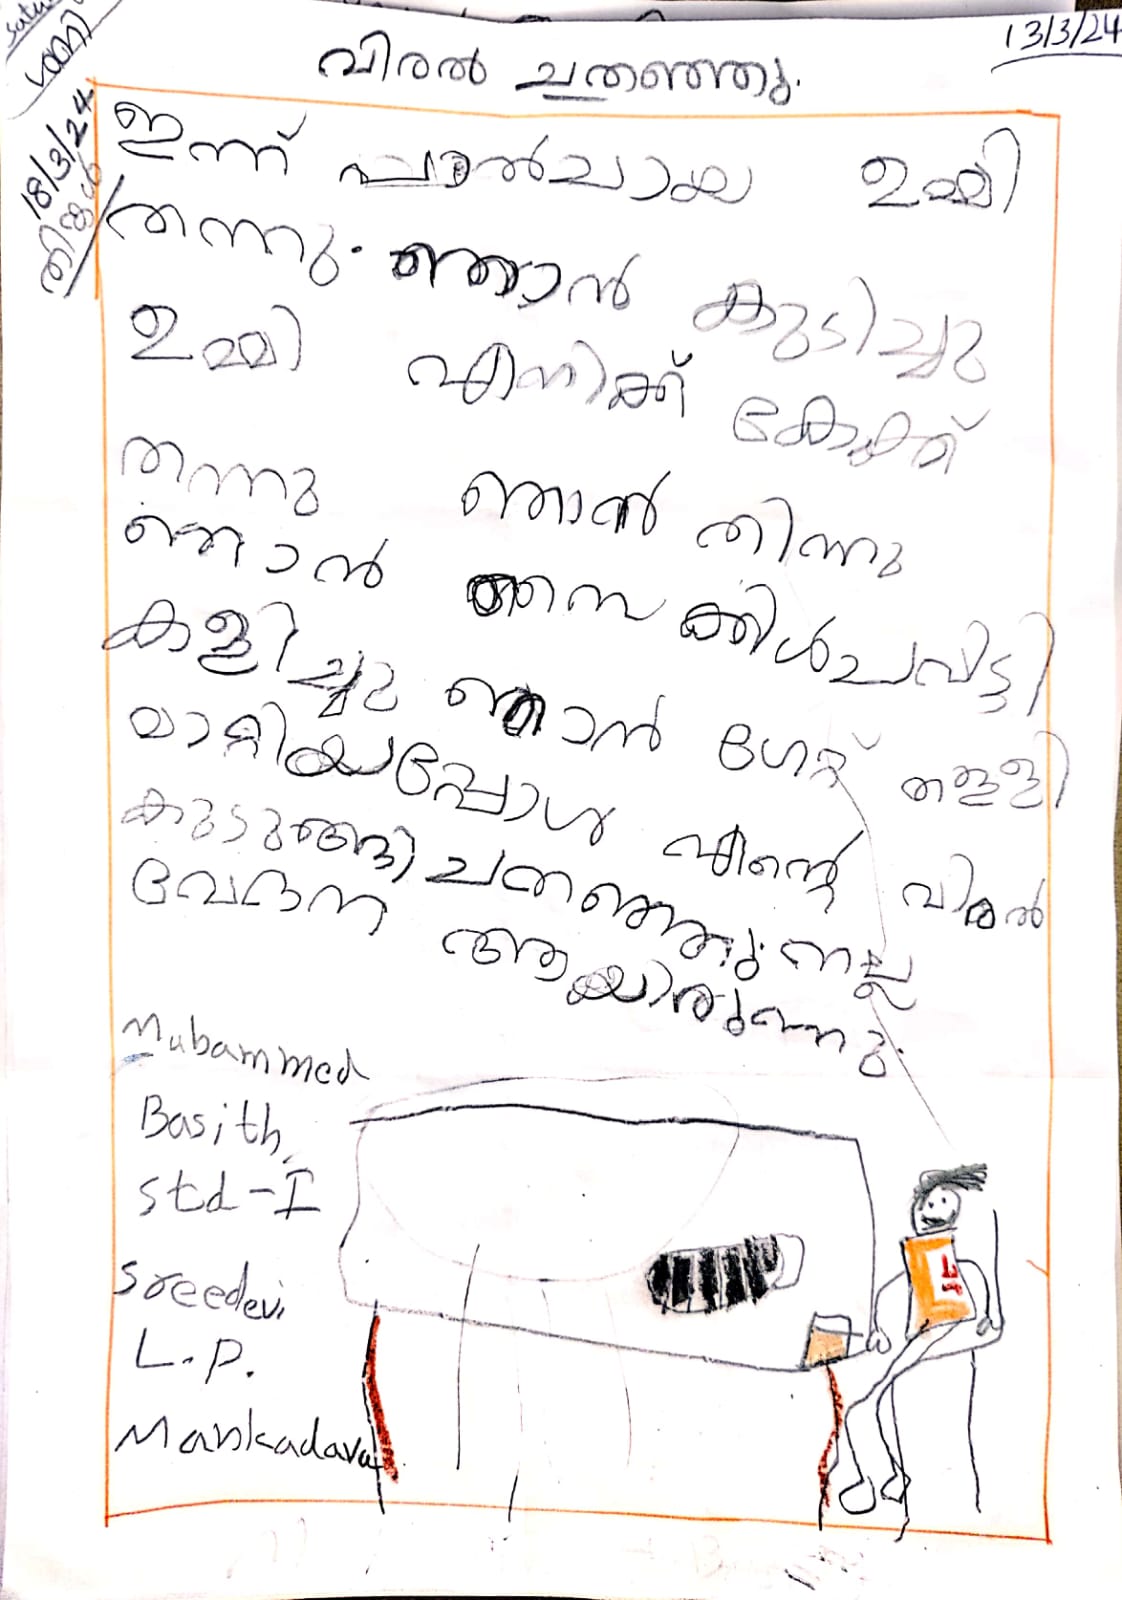 13/3/24
ശനി
18/3/24
തിങ്കൾ
വിരൽ ചതഞ്ഞു.
ഇന്ന് പാൽചായ ഉമ്മി
തന്നു. ഞാൻ കുടിച്ചു
ഉമ്മി എനിക്ക് കേക്ക്
തന്നു ഞാൻ തിന്നു
ഞാൻ ക്കിൾചവിട്ടി
കളിച്ചു ഞാൻ ഗേറ്റ് തള്ളി
മാറിയപ്പോൾ എന്റെ വിരൽ
കുടുങ്ങി ചതഞ്ഞു നല്ല
വേദന ആയിരുന്നു.
Muhammed
Basith
Std-I
Sreedevi
L.P.
Mankadava